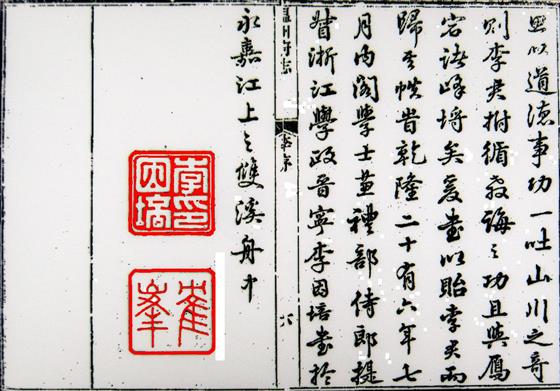 思以道德事功一吐山川之奇
則李君拊循教誨之功且與鴈
宕諸峰埒矣爰書以貽李君而
歸其帙旹乾隆二十有六年七
月內閣學士兼禮部侍郎提
督浙江學政晉寧李因培書於
溫州府志
李序
六
永嘉江上之雙溪舟中
李印因培
隺峯